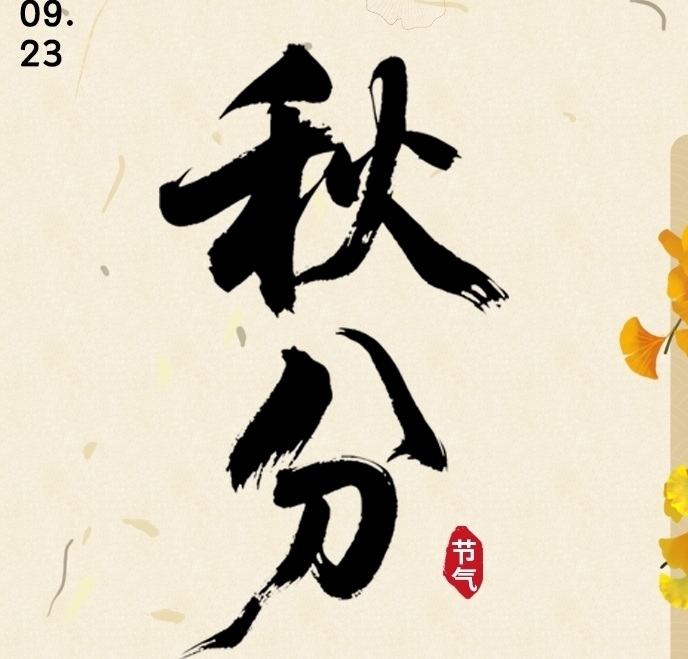 09.
23
秋
分
节
气